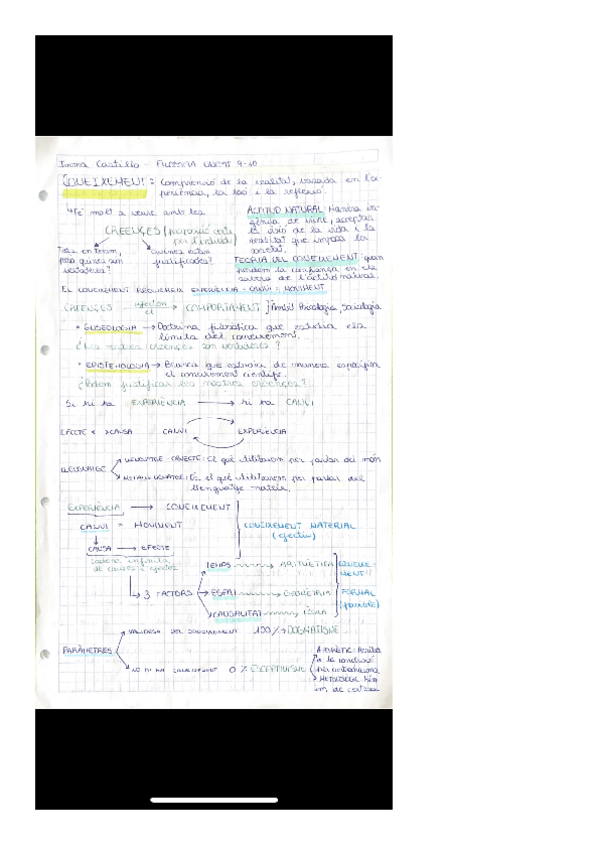 Castillo - FILOSOFIA 9-10
CONEIXEMENT: Comprensió de la realitat, basada en l'ex-
periència, la raó i la reflexió.
Té molt a veure amb les
CREENÇES (proposició certa
per l'individu)
ACTITUD NATURAL: Manera
de viure, acceptar
la visió de la vida i la
realitat que imposa la
societat.
Tots en tenim,
però quines són
vertaderes?
quines estan
justificades?
TEORIA DEL CONEIXEMENT: quan
perdem la confiança en els
sabers de l'actitud natural.
EL CONEIXEMENT REQUEREIX EXPERIÈNCIA - CANVI = MOVIMENT
CREENÇES afecten el COMPORTAMENT } Àmbit Psicologia, Sociologia
• GNOSEOLOGIA → Doctrina filosòfica que estudia els
límits del coneixement.
¿Les nostres creençes són vertaderes?
• EPISTEMOLOGIA → Branca que estudia de manera específica
el coneixement científic.
¿Podem justificar les nostres creençes?
Si hi ha EXPERIÈNCIA → hi ha CANVI
EFECTE < > CAUSA CANVI EXPERIÈNCIA
LLENGUATGE
LLENGUATGE - OBJECTE: el què utilitzam per parlar del món
METALLENGUATGE: És el què utilitzam per parlar del
llenguatge mateix.
EXPERIÈNCIA → CONEIXEMENT
CANVI = MOVIMENT
CONEIXEMENT MATERIAL
(efectiu)
CAUSA → EFECTE
cadena infinita
de causes i efectes
3 FACTORS
TEMPS → ARITMÈTICA
ESPAI → GEOMETRIA
CAUSALITAT → LÒGICA
CONEIXE-
MENT
FORMAL
(possible)
PARÀMETRES
VALIDESA DEL CONEIXEMENT 100% → DOGMATISME
NO HI HA CONEIXEMENT 0% ESCEPTICISME